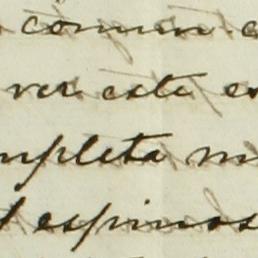 comun
ver este en
mpleta m
espinos